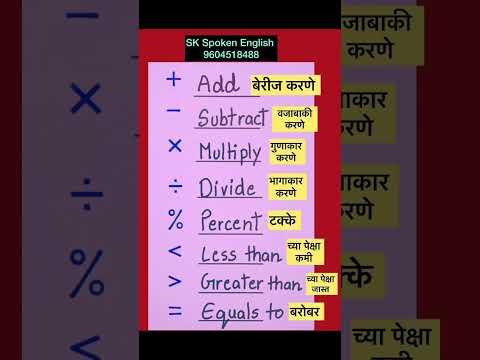 SK Spoken English
9604518488
+ Add बेरीज करणे
− Subtract वजाबाकी करणे
× Multiply गुणाकार करणे
÷ Divide भागाकार करणे
% Percent टक्के
< Less than च्या पेक्षा कमी
> Greater than च्या पेक्षा जास्त
= Equals to बरोबर